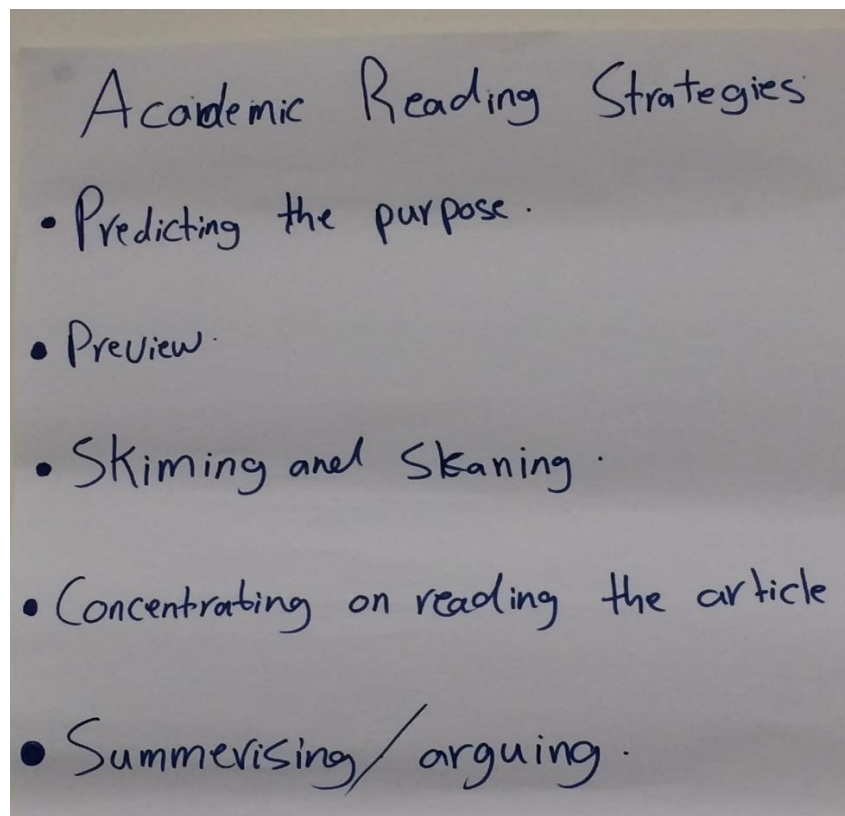 Academic Reading Strategies
• Predicting the purpose.
• Preview.
• Skiming and Skaning.
• Concentrating on reading the article
• Summerising/arguing.